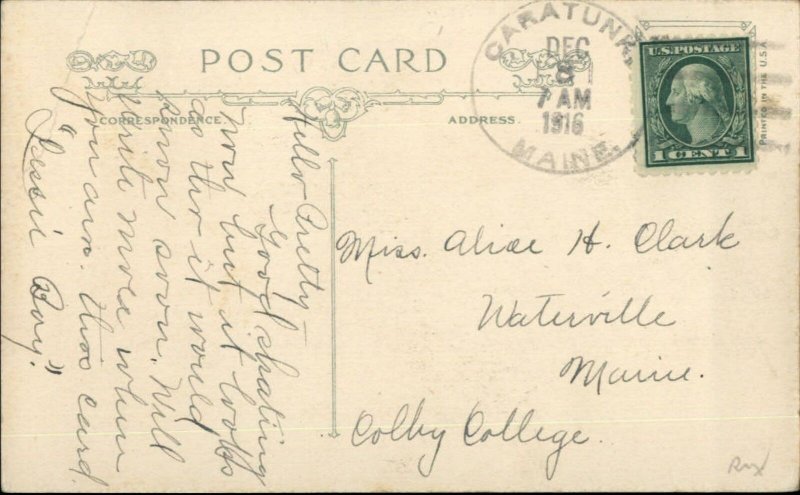 POST CARD
CORRESPONDENCE.
ADDRESS.
CARATUNK,
DEC
8
7 AM
1916
MAINE.
U.S. POSTAGE
1 CENT 1
PRINTED IN THE U.S.A
Hello Pretty –
Good skating
now but it looks
as tho' it would
snow soon. Will
write more when
you ans. this card.
"Jessie Boy."
Miss. Alice H. Clark
Waterville
Maine.
Colby College.